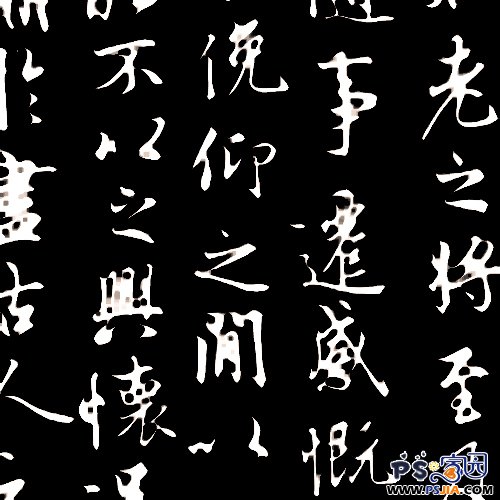 老之將至
事遷感慨
俛仰之間以
不以之興懷
於盡古人
PS家园
WWW.PSJIA.COM